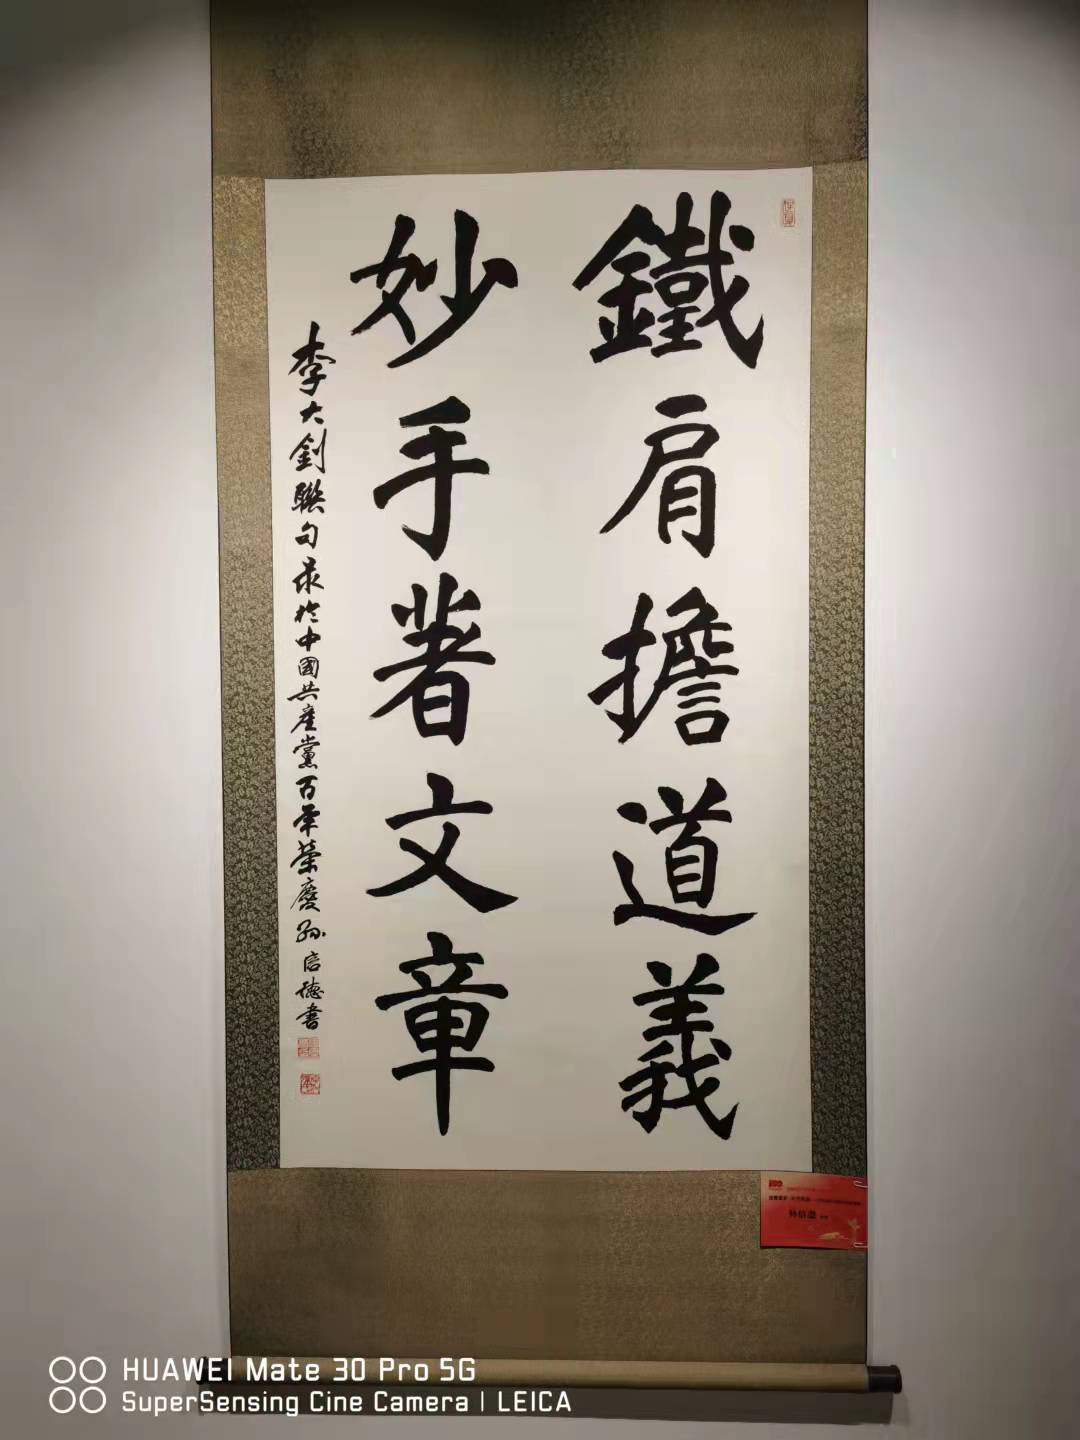 鐵肩擔道義
妙手著文章
李大釗聯句录於中國共產黨百年榮慶孫信德書
孙信德
HUAWEI Mate 30 Pro 5G
SuperSensing Cine Camera | LEICA